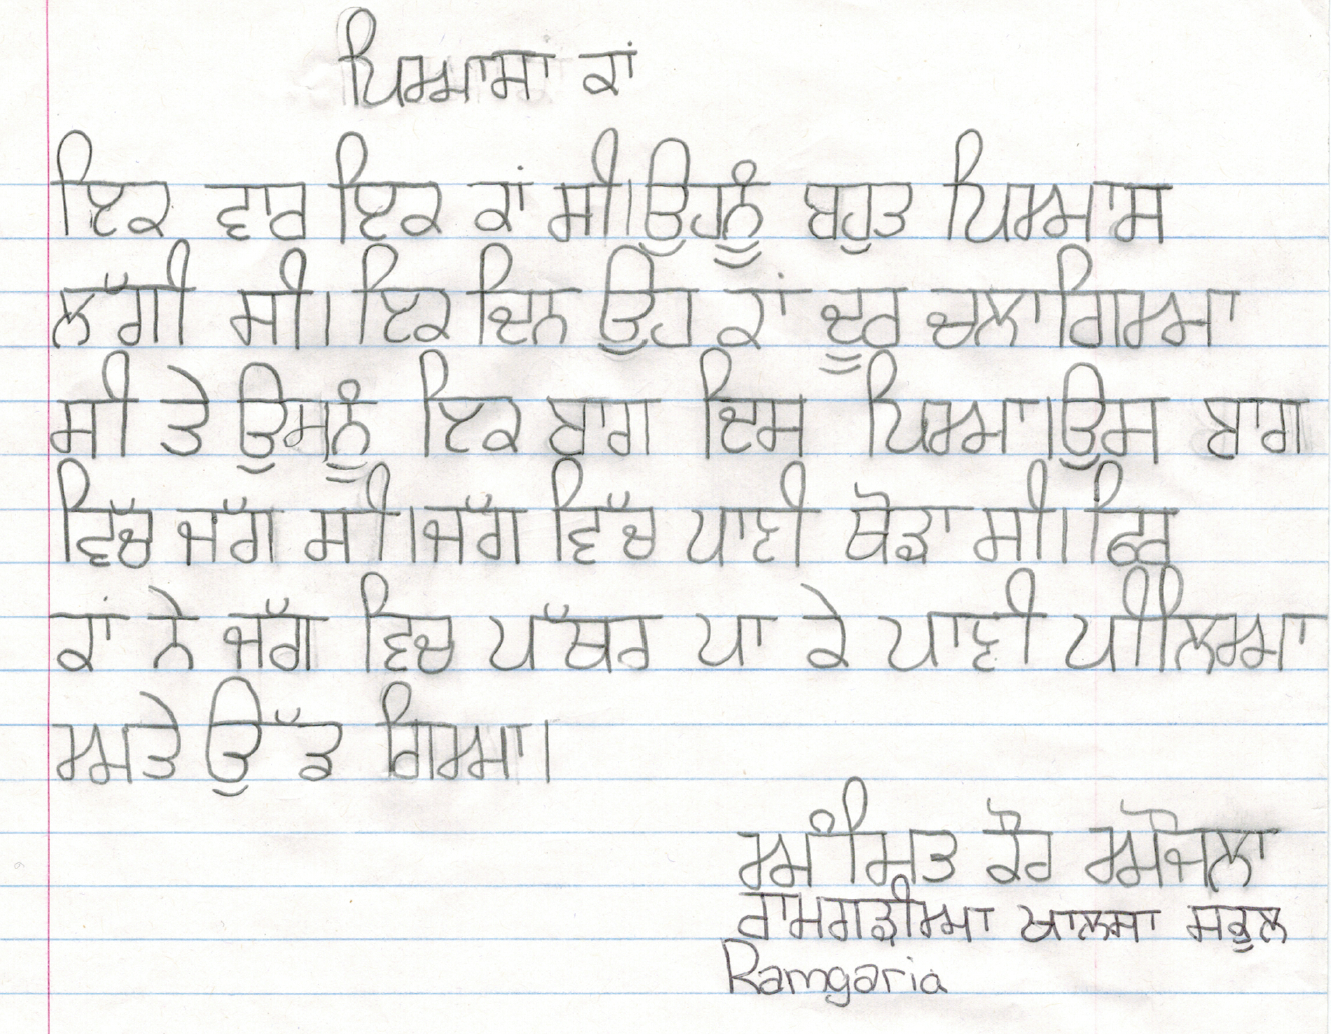 ਪਿਆਸਾ ਕਾਂ
ਇਕ ਵਾਰ ਇਕ ਕਾਂ ਸੀ।ਉਹਨੂੰ ਬਹੁਤ ਪਿਆਸ
ਲੱਗੀ ਸੀ। ਇਕ ਦਿਨ ਉਹ ਕਾਂ ਦੂਰ ਚਲਾ ਗਿਆ
ਸੀ ਤੇ ਉਸਨੂੰ ਇਕ ਬਾਗ ਦਿਸ ਪਿਆ।ਉਸ ਬਾਗ
ਵਿੱਚ ਜੱਗ ਸੀ।ਜੱਗ ਵਿੱਚ ਪਾਣੀ ਥੋੜਾ ਸੀ। ਫਿਰ
ਕਾਂ ਨੇ ਜੱਗ ਵਿਚ ਪੱਥਰ ਪਾ ਕੇ ਪਾਣੀ ਪੀ ਲਿਆ
ਅਤੇ ਉੱਡ ਗਿਆ।
ਅੰਮਿਤ ਕੌਰ ਔਜਲਾ
ਰਾਮਗੜੀਆ ਖਾਲਸਾ ਸਕੁਲ
Ramgaria